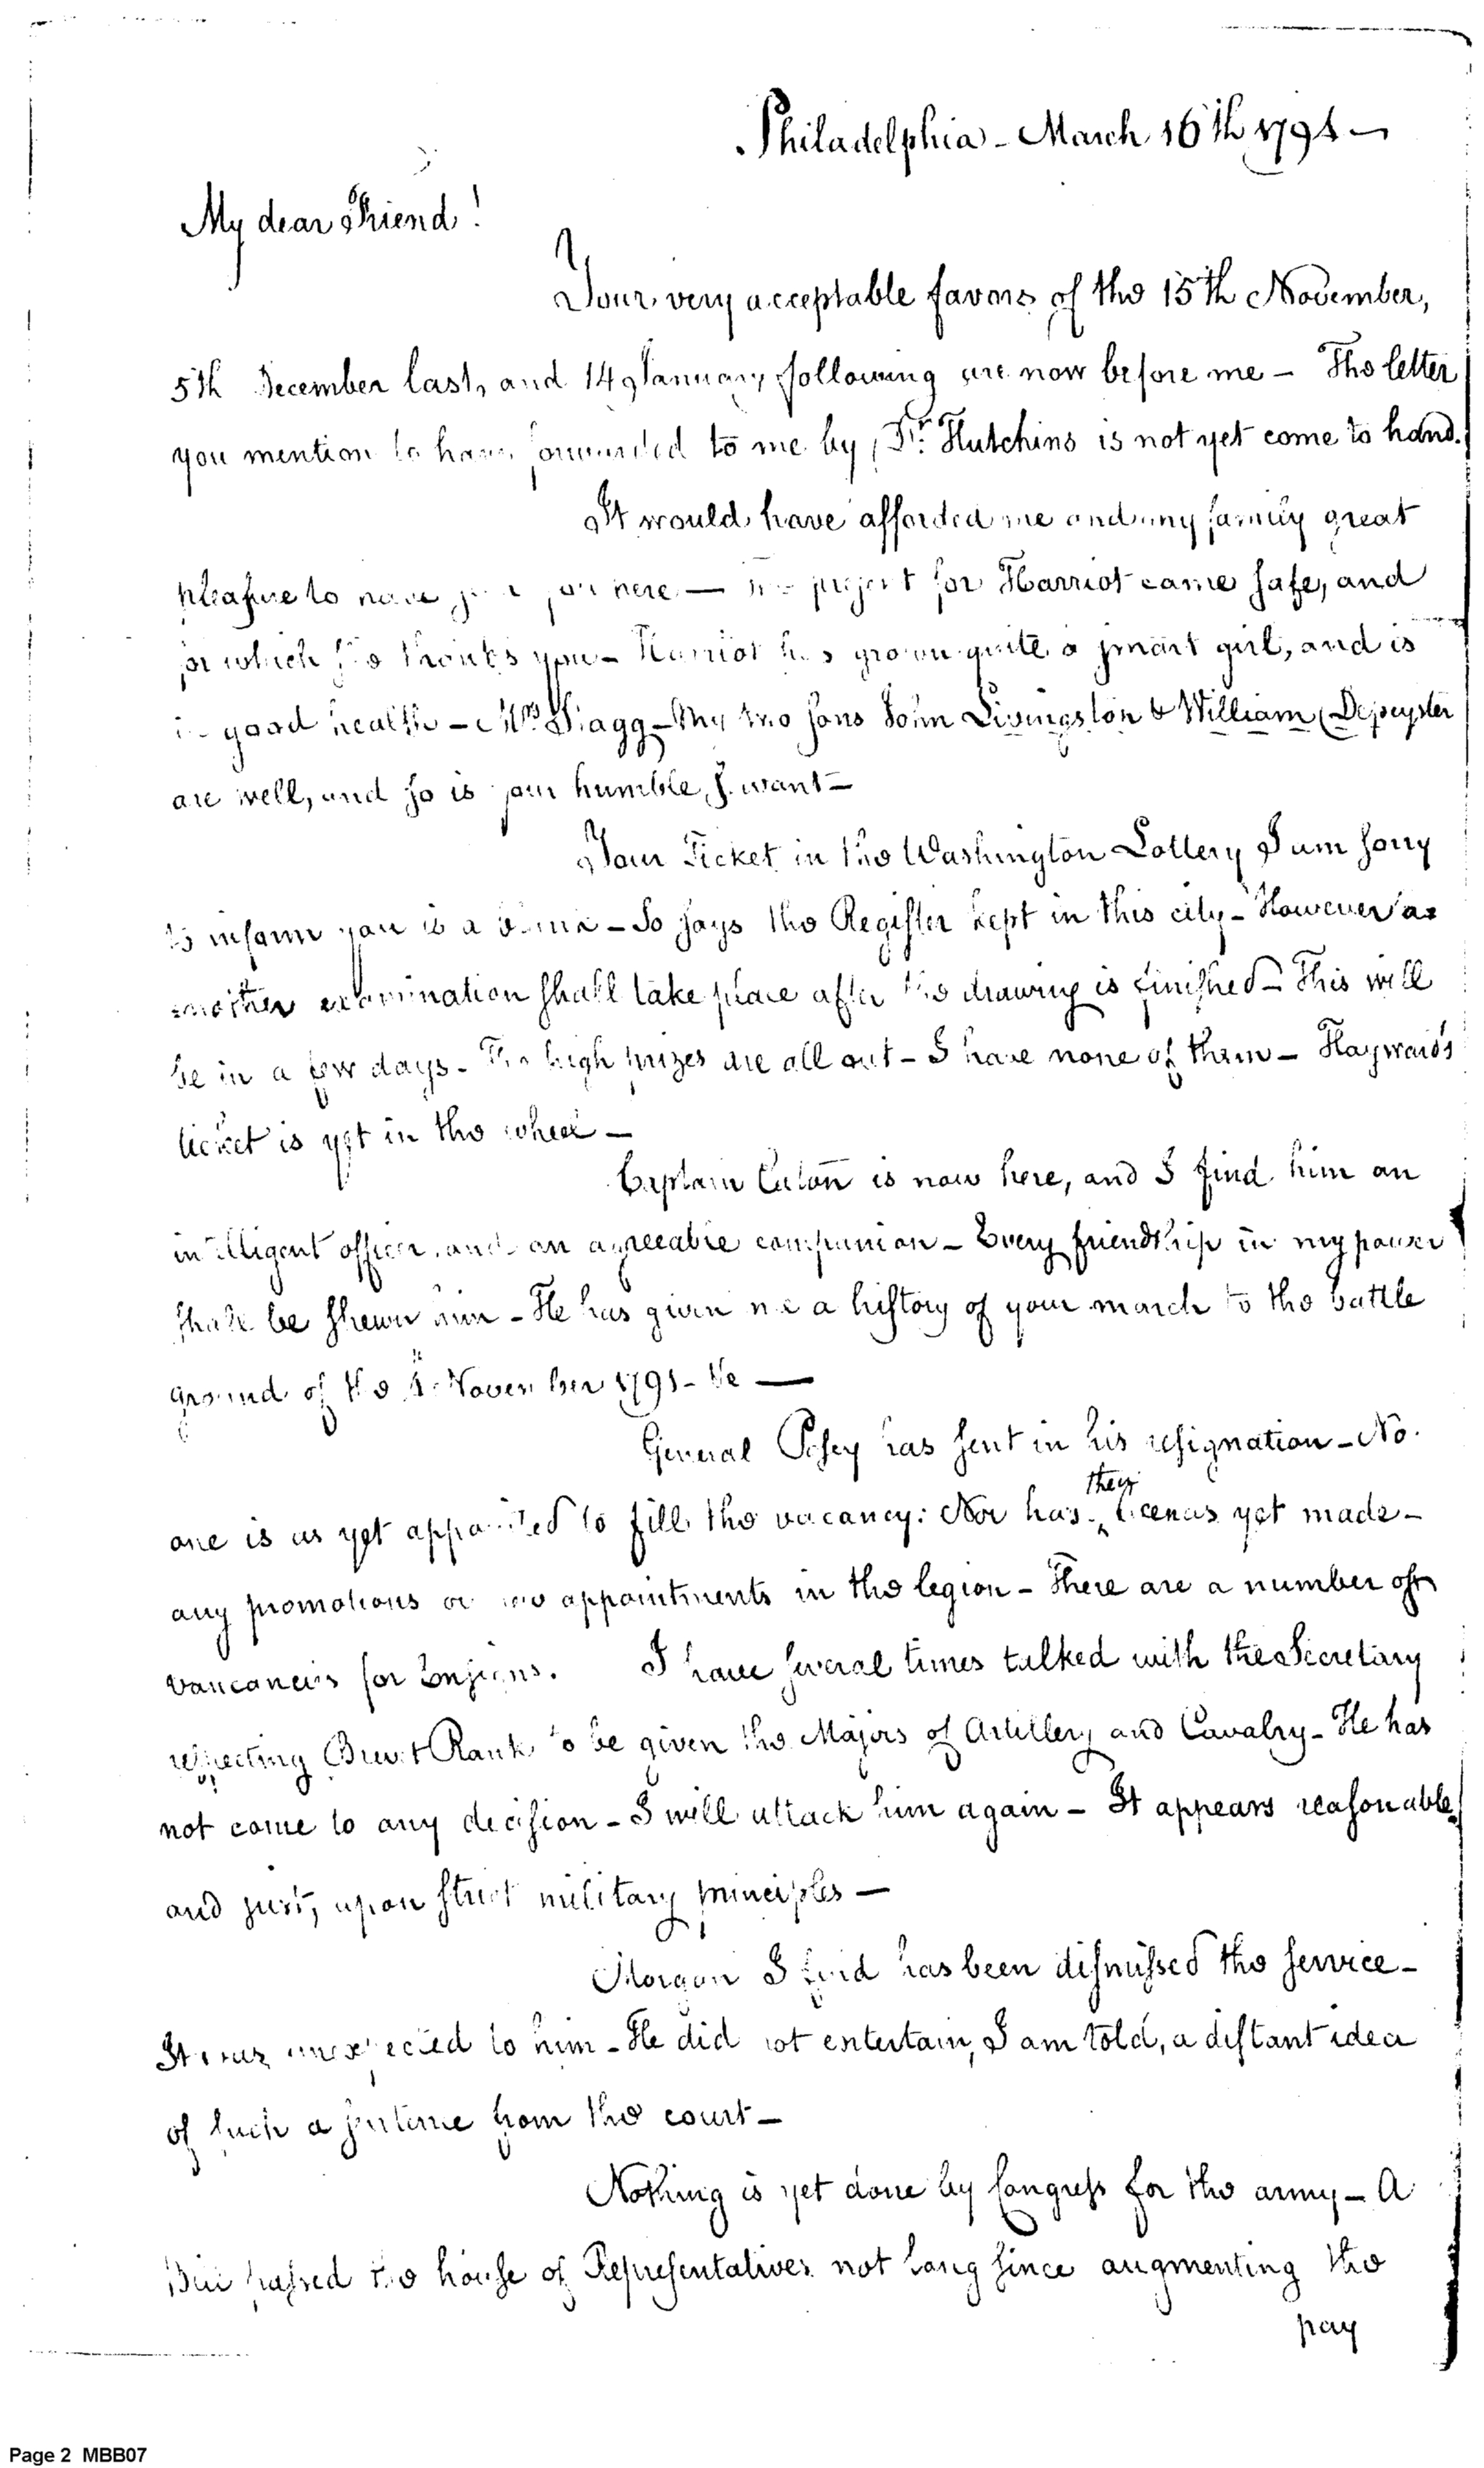 Philadelphia - March 16th 1794 -
My dear Friend!
Your very acceptable favors of the 15th November,
5th December last, and 14 January following are now before me - The letter
you mention to have forwarded to me by Dr. Hutchins is not yet come to hand.
It would have afforded me and my family great
pleasure to have you here - The present for Harriot came safe, and
for which she thanks you - Harriot has grown quite a smart girl, and is
in good health - Mrs Stagg - My two sons John Livingston & William Depeyster
are well, and so is your humble S.want -
Your Ticket in the Washington Lottery I am sorry
to inform you is a blank - So says the Register kept in this city - However
another examination shall take place after the drawing is finished - This will
be in a few days - The high prizes are all out - I have none of them - Hayward's
ticket is yet in the wheel -
Captain Eaton is now here, and I find him an
intelligent officer, and an agreeable companion - Every friendship in my power
shall be shewn him - He has given me a history of your march to the battle
ground of the 4th November 1791 - &c -
General Posey has sent in his resignation - No
one is as yet appointed to fill the vacancy: Nor has there been as yet made
any promotions or new appointments in the legion - There are a number of
vaucancies for Ensigns. I have several times talked with the Secretary
respecting Brevet Rank to be given the Majors of Artillery and Cavalry - He has
not come to any decision - I will attack him again - It appears reasonable
and just, upon strict military principles -
Morgan I find has been dismissed the service -
It was unexpected to him - He did not entertain, I am told, a distant idea
of such a sentence from the court -
Nothing is yet done by Congress for the army - A
Bill passed the house of Representatives not long since augmenting the
pay
Page 2 MBB07